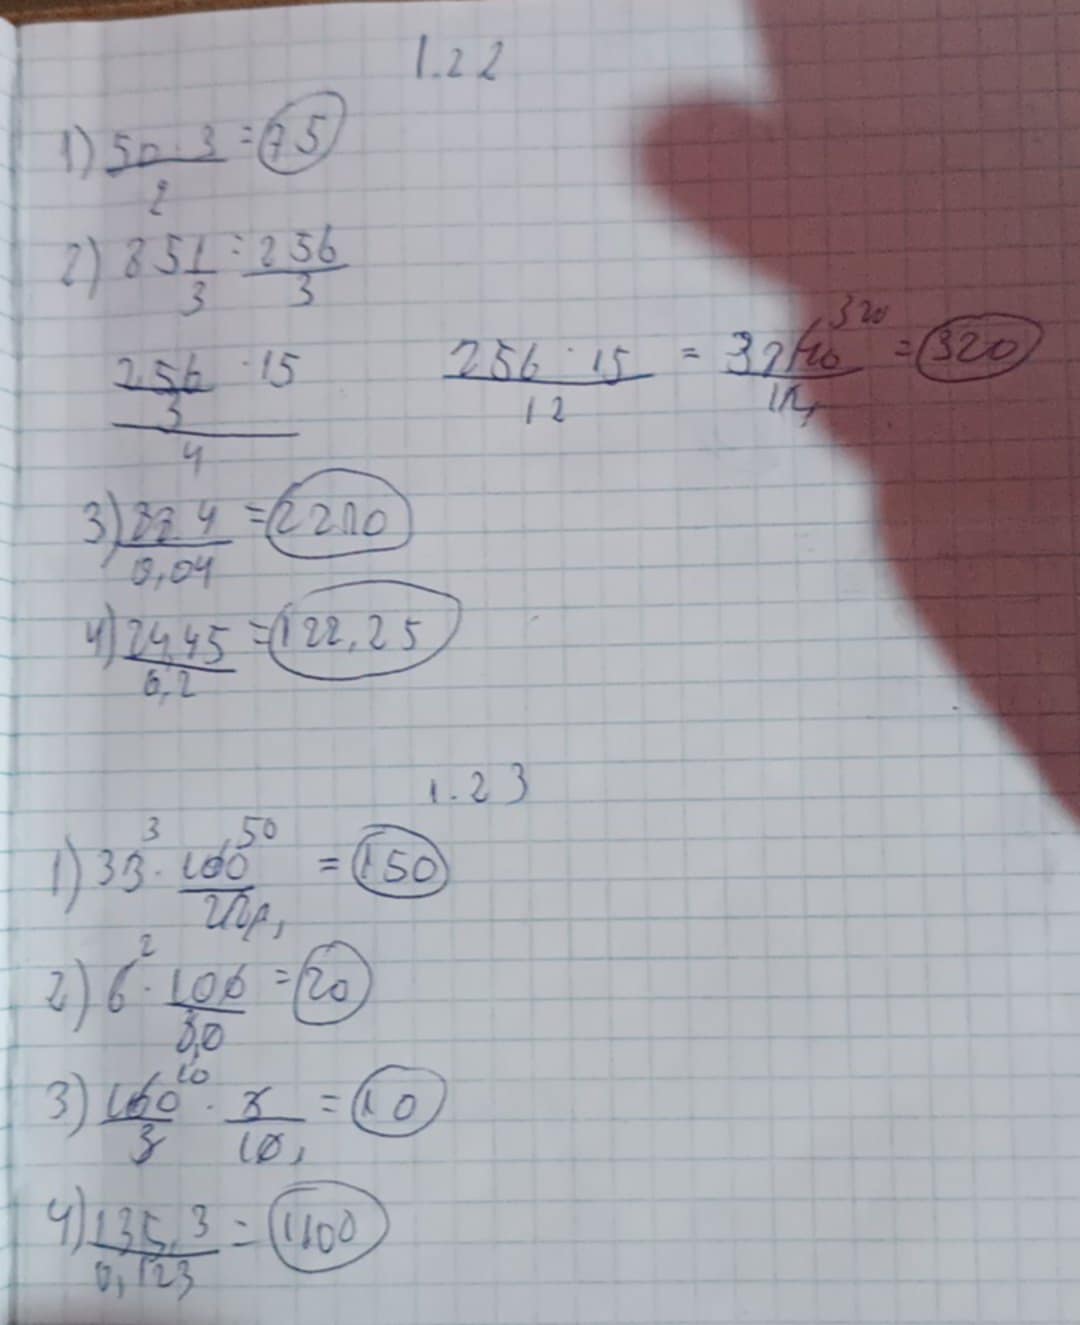 1.22
1) 50 · 3 / 2 = 75
2) 85 1/3 = 256/3
256/3 · 15 / 4
256 · 15 / 12 = 320 = 320
3) 4 / 0,04 =
4) 24,45 / 0,2 = 122,25
1.23
1) 33 · 100 / = 150
3 50
2) 6 · 100 / 30 = 20
2
3) 100 / 3 · 3 / 10 = 10
10
4) 135,3 / 0,123 = 1100